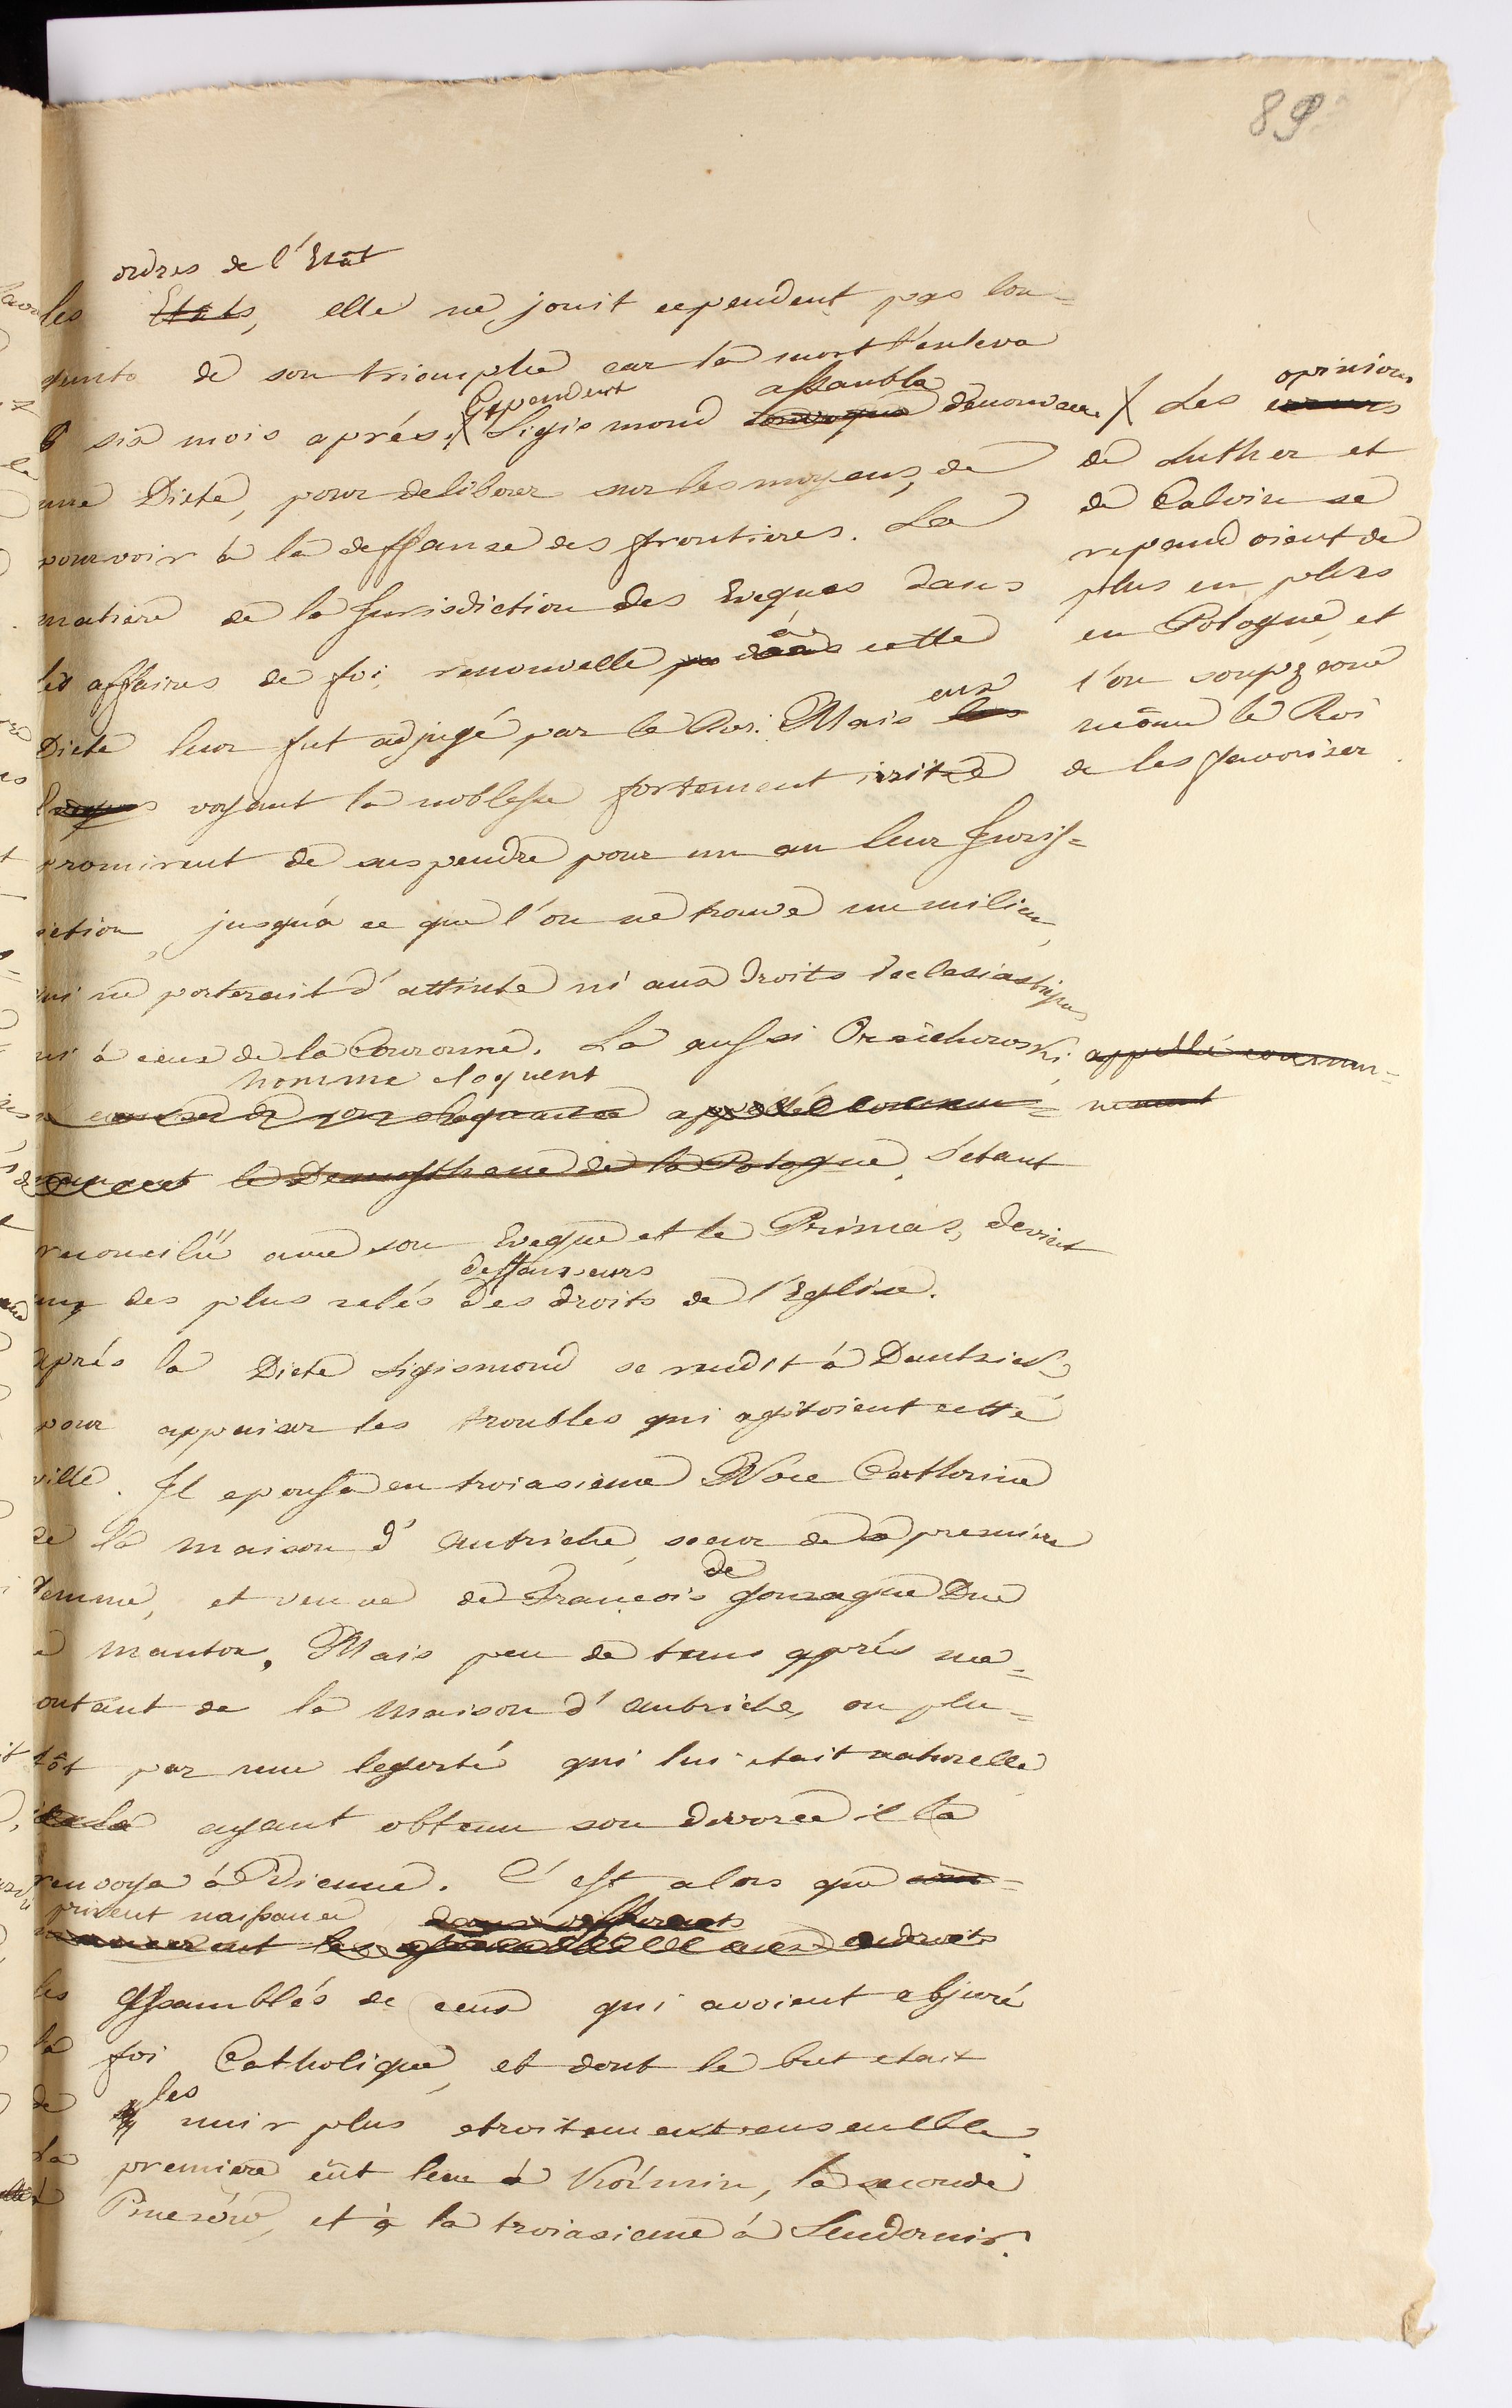 89
ordres de l'Etât
les Etats, elle ne jouit cependent pas lon=
de son triomphe car la mort l'enleva
6 six mois aprés. X Cependent Sigismond convoqua assembla denouveau
une Diete, pour deliberer sur les moyens, de
pourvoir à la deffense des frontieres. La
matiere de la Jurisdiction des Eveques dans
les affaires de foi, renouvellé à cette
Diete leur fut adjugé par le Roi. Mais les eux
Eveques voyant la noblesse fortement irrité
promirent de suspendre pour un an leur Juris=
diction, jusqu'à ce que l'on ne trouve un milieu,
qui ne porterait d'attinte ni aux droits Ecclesiastiques
ni à ceux de la Couronne. La aussi Orzichowski, appellé commu=
nement
homme eloquent
a cause de son eloquence appellé commu=
nement le Demosthene de la Pologne, s'etant
reconcilié avec son Eveque et le Primas, devint
un des plus zelés deffenseurs des droits de l'Eglise.
aprés la Diete Sigismond se rendit à Dantzick,
pour appaiser les troubles qui agitoient cette
ville. Il epousa en troisieme Noce Catherine
de la maison d'Autriche, soeur de sa premiere
femme, et veuve de François de Gonzague Duc
de Mantoue. Mais peu de tems aprés me=
contant de la maison d'Autriche, ou plu=
tôt par une legerté qui lui etait naturelle
ayant obtenu son divorce il la
renvoya à Vienne. C'est alors que com=
prirent naissance dans differents
mencerent les endroits
les assamblés de ceux qui avoient abjuré
la foi Catholique, et dont le but etait
de les unir plus etroitement ensemble.
La premiere eût lieu à Kozmin, la seconde
à Pinczów, et à la troisieme à Sendomir.
X Les erreurs opinions
de Luther et
de Calvin se
repandoient de
plus en plus
en Pologne, et
l'on soupçonne
même le Roi
de les favoriser.